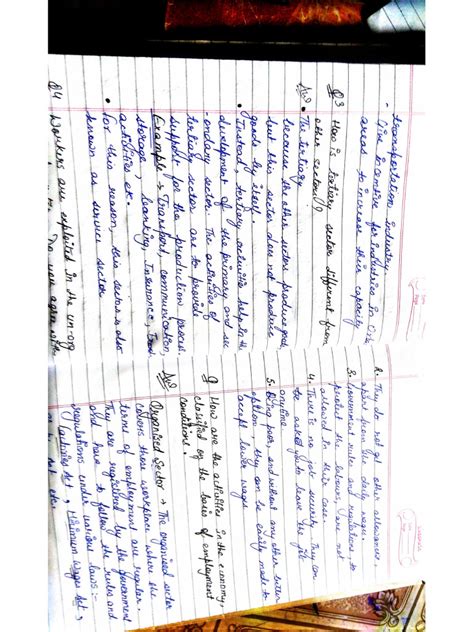 transportation industry.
- Give incentive for industries in
areas to increase their capacity
Q3 How is tertiary sector different from
other sectors?
Ans • The tertiary
because the other sectors produce goods,
but this sector does not produce
goods by itself.
• Instead, tertiary activities help in the
development of the primary and sec
-ondary sector. The activities of
tertiary sector are to provide
support for the production process.
Example → Transport, communication,
storage, banking, Insurance,
activities etc.
• for this reason, this sector is also
known as service sector
Q4 Workers are exploited in the un-org
Do you agree
2. They do not get other allowances,
apart from the daily wages.
3. Government rules and regulations to
protect the labours are not
followed in their case.
4. There is no job security. They can
be asked to leave the job
anytime
5. Being poor, and without any other better
option, they can be easily made to
accept lower wages
Q How are the activities in the economy,
classified on the basis of employment
conditions
Ans Organised Sector → The organised sector
covers those workplaces where the
terms of employment are regular.
They are registered by the government
and have to follow the rules and
regulations under various laws:-
Factories Act, Minimum Wages Act,